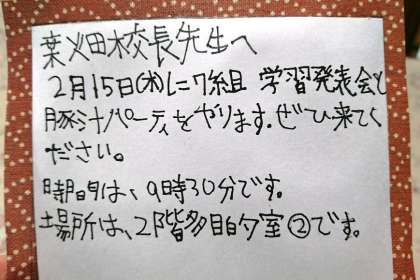 葉畑校長先生へ
2月15日(水)に7組 学習発表会と
豚汁パーティをやります。ぜひ来てく
ださい。
時間は、9時30分です。
場所は、2階多目的室②です。